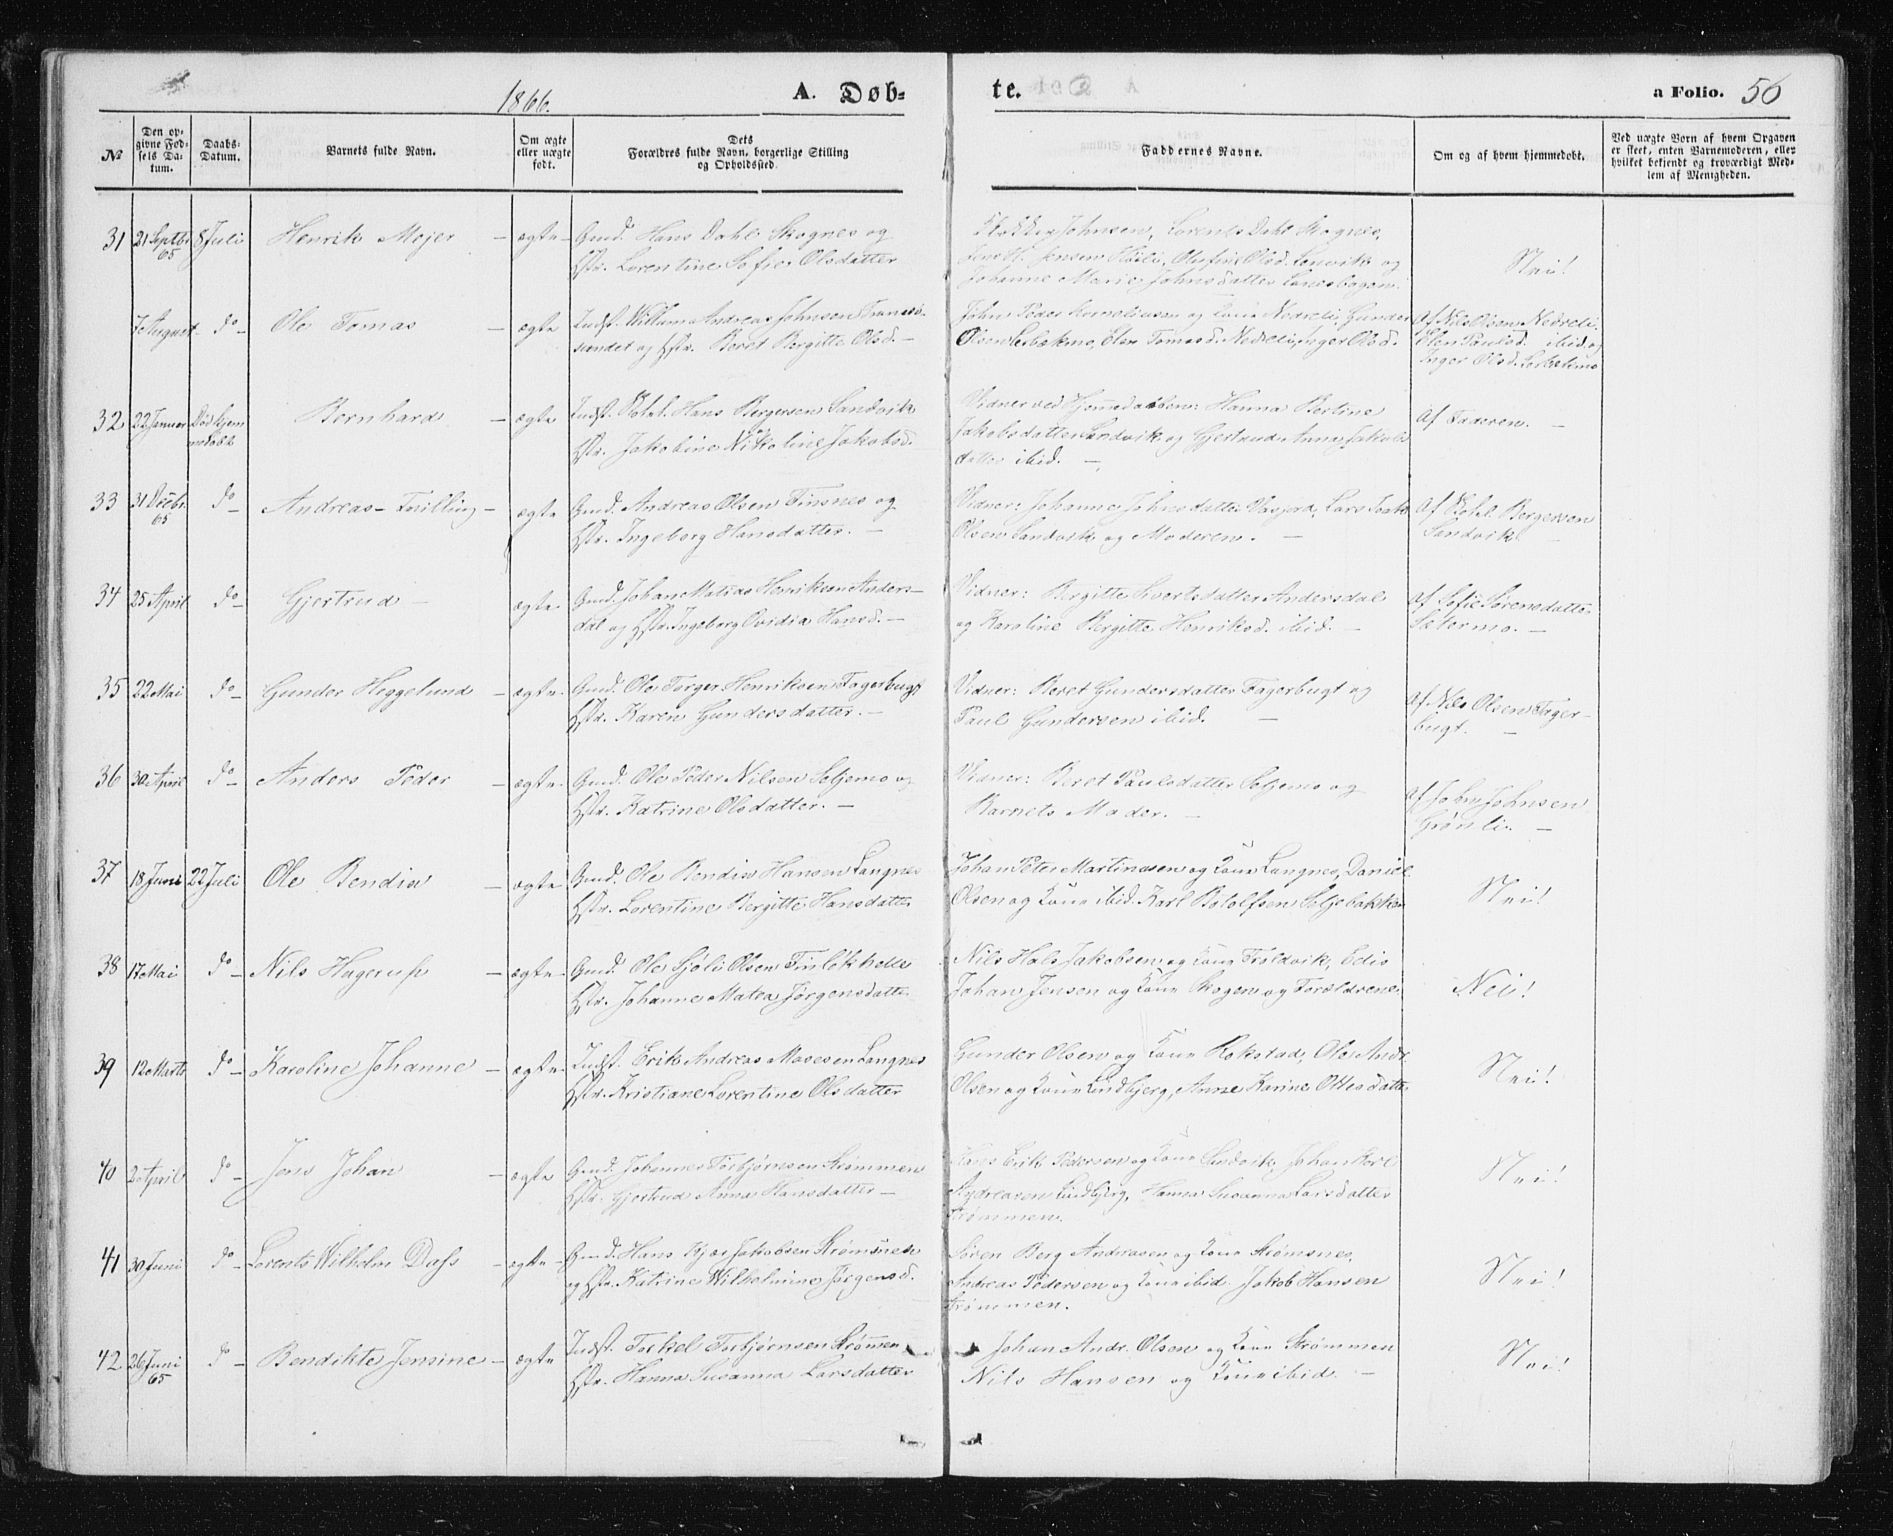 1866.
A. Døb-
te.
a Folio. 56
№
Den op-
givne Fød-
sels Da-
tum.
Daabs-
Datum.
Barnets fulde Navn.
Om ægte
eller uægte
født.
Dets
Forældres fulde Navn, borgerlige Stilling
og Opholdssted.
Faddernes Navne.
Om og af hvem hjemmedøbt.
Ved uægte Børn af hvem Opgaven
er skeet, enten Barnemoderen, eller
hvilket bekjendt og troværdigt Med-
lem af Menigheden.
31 21 Septbr 65 8 Juli Henrik Mejer – ægte – Gmd. Hans Dahl Skognes og
Hstr. Lorentine Sofie Olsdatter
Johnsen, Lorents Dahl Skognes,
Lene H. Jensen Olufine Olsd. Lenvik og
Johanne Marie Johnsdatter
Nei!
7 August – do – Ole Tomas – ægte Indst. Willum Andreas Johnsen Tranøs-
sundet og Hstr. Beret Bergitte Olsd. –
John Peder Korneliussen og Kone Nedreli, Gunder
Olsen Elen Tomasd. Nedreli, Inger Olsd.
Af Nils Olsen Nedreli,
Elen Paulsd. ibid. og
Inger Olsd.
32 22 Januar Død hjem-
medøbt Bernhard – ægte Indst. Hans Bergersen Sandvik
Hstr. Jakobine Nikoline Jakobsd.
Vidner ved Hjemmedaaben: Hanna Bertine
Jakobsdatter Sandvik og Gjertrud Anna Jakobs
datter ibid. –
Af Faderen. –
33 31 Decbr. 65 do – Andreas – Tvilling – ægte Gmd. Andreas Olsen Finsnes og
Hstr. Ingeborg Hansdatter. –
Vidner: Johanna Johnsdatter Lars
Olsen Sandvik og Moderen. –
Af Bergersen
Sandvik
34 25 April do – Gjertrud – ægte Gmd. Johan Matias Henriksen Anders-
dal og Hstr. Ingeborg Ovidia Hansd. –
Vidner: Bergitte Sivertsdatter Andersdal
og Karoline Bergitte Henriksd. ibid. –
Af Sofie Sørensdatter
Sætermo. –
35 22 Mai do – Gunder Heggelund – ægte Gmd. Ole Torger Henriksen Fagerbugt
Hstr. Karen Gundersdatter. –
Vidner: Beret Gundersdatter Fagerbugt og
Paul Gundersen ibid. –
Af Nils Olsen Fager-
bugt. –
36 30 April do – Anders Peder – ægte Gmd. Ole Peder Nilsen Seljemo og
Hstr. Katrine Olsdatter. –
Vidner: Beret Paulsdatter Seljemo og
Barnets Moder. –
Af John Johnsen
Grønli. –
37 18 Juni 22 Juli Ole Bendix – ægte Gmd. Ole Bendix Hansen Langnes
Hstr. Lorentine Bergitte Hansdatter
Johan Peter Martinusen og Kone Langnes, Daniel
Olsen og Kone ibid. Karl Botolfsen Seljebakken
Nei!
38 17 Mai do – Nils Hagerup – ægte – Gmd. Ole Olsen
Hstr. Johanne Matea Jørgensdatter
Nils Hals Jakobsen og Kone Troldvik,
Johan Jensen og Kone Skogen og Forældrene.
Nei!
39 12 Marts do – Karoline Johanne – ægte Indst. Erik Andreas Mosesen Langnes
Hstr. Kristiane Lorentine Olsdatter
Gunder Olsen og Kone Rokstad, Ole Andr.
Olsen og Kone Lindbjerg, Anne Karine Ottesdatter
Nei!
40 2 April do – Jens Johan – ægte Gmd. Johannes Torbjørnsen Strømmen
Hstr. Gjertrud Anna Hansdatter –
Hans Erik Pedersen og Kone Johan Karl
Andreasen Lindbjerg, Hanna Susanna Larsdatter
Strømmen.
Nei!
41 30 Juni do – Lorents Wilhelm Dass – ægte – Gmd. Hans Kjær Jakobsen Strømsnes
og Hstr. Katrine Wilhelmine Jørgensd.
Søren Berg Andreasen og Kone Strømsnes,
Andreas Pedersen og Kone ibid. Jakob Hansen
Strømmen.
Nei!
42 26 Juni 65 do – Bendikte Jensine – ægte Indst. Torkel Torbjørnsen Strømmen
Hstr. Hanna Susanna Larsdatter
Johan Andr. Olsen og Kone Strømmen
Nils Hansen og Kone ibid. –
Nei!